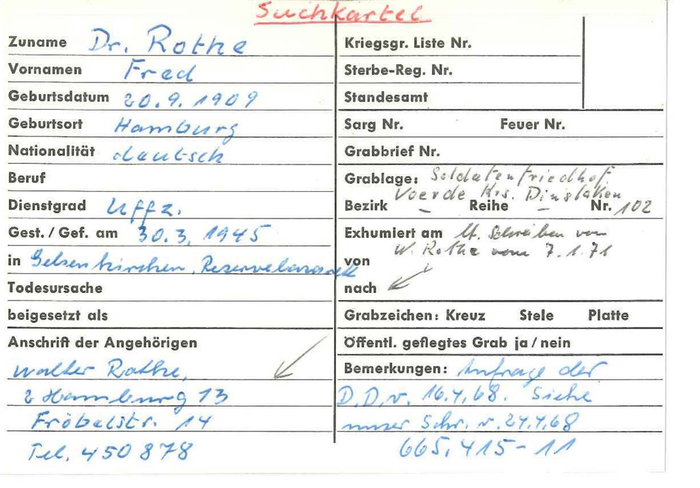 Suchkartei
Zuname Dr. Rothe
Vornamen Fred
Geburtsdatum 20.9.1909
Geburtsort Hamburg
Nationalität deutsch
Beruf
Dienstgrad Uffz.
Gest. / Gef. am 30.3.1945
in Gelsenkirchen, Reservelazarett
Todesursache
beigesetzt als
Anschrift der Angehörigen
Walter Rothe,
2 Hamburg 13
Fröbelstr. 14
Tel. 450878
Kriegsgr. Liste Nr.
Sterbe-Reg. Nr.
Standesamt
Sarg Nr. Feuer Nr.
Grabbrief Nr.
Grablage: Soldatenfriedhof
Voerde Krs. Dinslaken
Bezirk – Reihe – Nr. 102
Exhumiert am lt. Schreiben von
W. Rothe vom 7.1.71
von
nach
Grabzeichen: Kreuz Stele Platte
Öffentl. gepflegtes Grab ja / nein
Bemerkungen: Anfrage der
D.D. v. 16.4.68. Siehe
unser Schr. v. 24.4.68
665.415-11